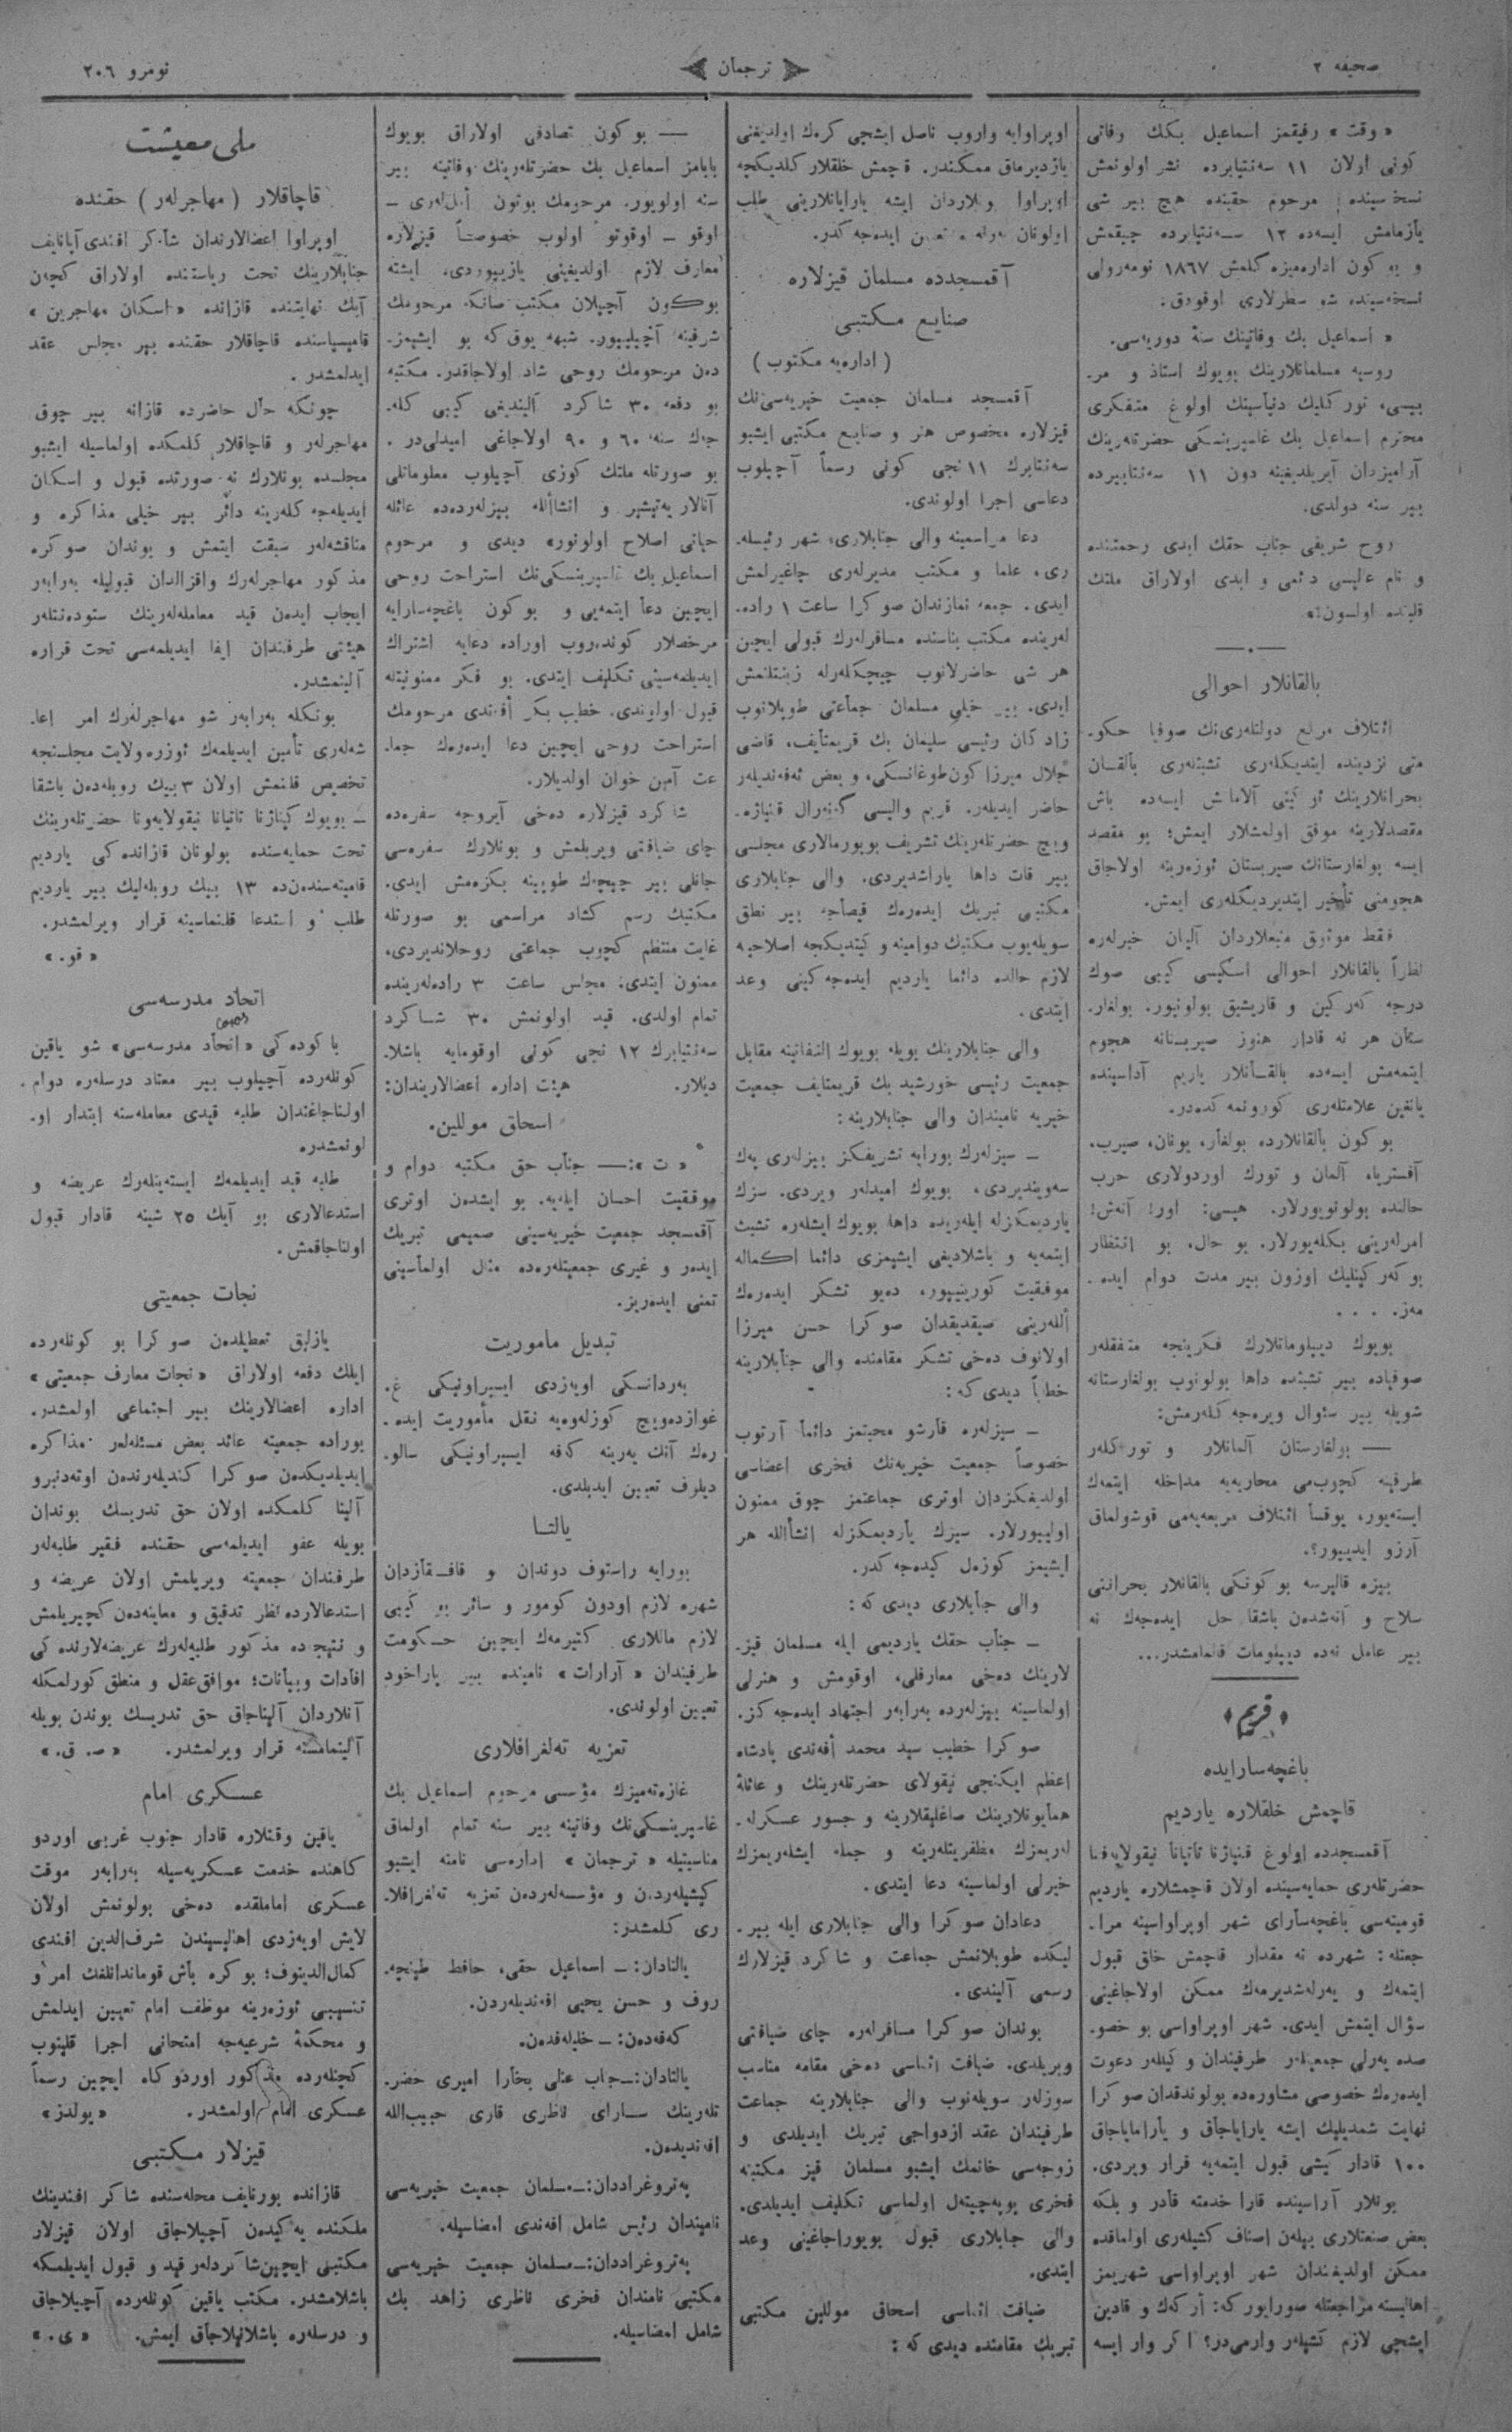 صحیفه ٢
ترجمان
نومرو ٢٠٦
« وقت » رفیقمز اسماعیل بكك وفاتی
كونی اولان ١١ سه‌نتیابرده نشر اولونمش
نسخه‌سینده مرحوم حقینده هیچ بیر شی
یازمامش ایسه‌ده ١٢ سه‌نتیابرده چیقمش
و بو كون اداره‌میزه كلمش ١٨٦٧ نومه‌رولی
نسخه‌سینده شو سطرلاری اوقودق:
« اسماعیل بك وفاتینك سنهٔ دوریه‌سی.
روسیه مسلمانلارینك بویوك استاذ و مر-
بیسی، تورکلیك دنیاسینك اولوغ متفكری
محترم اسماعیل بك غاسپرینسكی حضرتلرینك
آرامیزدان آیریلدیغینه دون ١١ سه‌نتیابرده
بیر سنه دولدی.
روح شریفی جناب حقك ابدی رحمتنده
و نام عالیسی دئمی و ابدی اولاراق ملتك
قلبنده اولسون!»
بالقانلار احوالی
ائتلاف مربع دولتله‌ری‌نك صوفیا حكو-
متی نزدینده ایتدیكله‌ری تشبثله‌ری بالقان
بحرانلارینك ئوكینی آلاماش ایسه‌ده باش
مقصدلارینه موفق اولمشلار ایمش؛ بو مقصد
ایسه بولغارستانك صیربستان ئوزه‌رینه اولاجاق
هجومنی تأخیر ایتدیردیكله‌ری ایمش.
فقط موثوق منبعلاردان آلینان خبرله‌ره
نظراً بالقانلار احوالی اسكیسی كیبی صوك
درجه كه‌ركین و قاریشیق بولونیور. بولغار-
ستان هر نه قادار هنوز صیربستانه هجوم
ایتمه‌مش ایسه‌ده بالقانلار یاریم آداسینده
یانغین علامتله‌ری كورونمه كده‌در.
بو كون بالقانلارده بولغار، یونان، صیرب،
آفستریا، آلمان و تورك اوردولاری حرب
حالنده بولونویورلار. هپسی: اور! آتش!
امرله‌رینی بكله‌یورلار. بو حال، بو انتظار
بو كه‌ركینلیك اوزون بیر مدت دوام ایده-
مه‌ز. . . .
بویوك دیپلوماتلارك فكرینجه متفقله‌ر
صوفیاده بیر تشبثده داها بولونوب بولغارستانه
شویله بیر سئوال ویره‌جه كله‌رمش:
— بولغارستان آلمانلار و توركله‌ر
طرفینه كچوب‌می محاربه‌یه مداخله ایتمه‌ك
ایسته‌یور، یوقسا ائتلاف مربعه‌یه‌می قوشولماق
آرزو ایدییور؟.
بیزه قالیرسه بو كونكی بالقانلار بحراننی
سلاح و آتشدن باشقا حل ایده‌جه‌ك نه
بیر عامل نه‌ده دیپلومات قالمامشدر...
﴿قریم﴾
باغچه‌سارایده
قاچمش خلقلاره یاردیم
آقمسجدده اولوغ قنیاژنا تاتیانا نیقولایه‌فنا
حضرتله‌ری حمایه‌سینده اولان قاچمشلاره یاردیم
قومیته‌سی باغچه‌سارای شهر اوپراواسینه مرا-
جعتله: شهرده نه مقدار قاچمش خلق قبول
ایتمه‌ك و یه‌رله‌شدیرمه‌ك ممكن اولاجاغینی
سؤال ایتمش ایدی. شهر اوپراواسی بو خصو-
صده یه‌رلی جمعیتله‌ر طرفیندان وكیلله‌ر دعوت
ایده‌رك خصوصی مشاوره‌ده بولوندقدان صوكرا
نهایت شمدیلیك ایشه یارایاجاق و یارامایاجاق
١٠٠ قادار كیشی قبول ایتمه‌یه قرار ویردی.
بونلار آراسینده قارا خدمته قادر و بلكه
بعض صنعتلاری بیله‌ن اصناف كشیله‌ری اولماقده
ممكن اولدیغندان شهر اوپراواسی شهریمز
اهالیسنه مراجعتله صورایور كه: أركه‌ك و قادین
ایشچی لازم كشیله‌ر وارمی‌در؟ اكر وار ایسه
اوپراوایه واروب ناصل ایشچی كره‌ك اولدیغنی
یازدیرماق ممكندر. قاچمش خلقلار كلدیكچه
اوپراوا ونلاردان ایشه یارایانلارینی طلب
ایده‌جه‌كدر.
آقمسجدده مسلمان قیزلاره
صنایع مكتبی
( اداره‌یه مكتوب )
آقمسجد مسلمان جمعیت خیریه‌سی‌نك
قیزلاره مخصوص هنر و صنایع مكتبی ایشبو
سه‌نتیابرك ١١ نجی كونی رسماً آچیلوب
دعاسی اجرا اولوندی.
دعا مراسمینه والی جنابلاری، شهر رئیسله-
ری، علما و مكتب مدیرله‌ری چاغیرلمش
ایدی. جمعه نمازندان صوكرا ساعت ١ راده-
له‌رینده مكتب بناسنده مسافرله‌رك قبولی ایچین
هر شی حاضرلانوب چیچكله‌رله زینتلنمش
ایدی. بیر خیلی مسلمان جماعتی طوپلانوب
زادكان رئیسی سلیمان بك قریمتایف، قاضی
جلال میرزا كون‌طوغانسكی، و بعض ئه‌فه‌ندیله‌ر
حاضر ایدیله‌ر. قریم والیسی كه‌نه‌رال قنیاژه-
ویچ حضرتله‌رینك تشریف بویورمالاری مجلسی
بیر قات داها یاراشدیردی. والی جنابلاری
مكتبی تبریك ایده‌رك قیصاجه بیر نطق
سویله‌یوب مكتبك دوامینه و كیتدیكجه اصلاحیه
لازم حالده دائما یاردیم ایده‌جه‌كینی وعد
ایتدی.
والی جنابلارینك بویله بویوك التفاتینه مقابل
جمعیت رئیسی خورشید بك قریمتایف جمعیت
خیریه نامیندان والی جنابلارینه:
— سیزله‌رك بورایه تشریفكز بیزله‌ری په‌ك
سه‌ویندیردی، بویوك امیدله‌ر ویردی. سزك
یاردیمكزله ایلریده داها بویوك ایشله‌ره تشبث
ایتمه‌یه و باشلادیغی ایشیمزی دائما اكماله
موفقیت كورینییور، ده‌یو تشكر ایده‌رك
ألله‌رینی صیقدیقدان صوكرا حسن میرزا
اولانوف ده‌خی تشكر مقامنده والی جنابلارینه
خطاباً دیدی كه:
— سیزله‌ره قارشو محبتمز دائما آرتوب
خصوصاً جمعیت خیریه‌نك فخری اعضاسی
اولدیغكزدان اوتری جماعتمز چوق ممنون
اولییورلار. سیزك یاردیمكزله انشأالله هر
ایشیمز كوزه‌ل كیده‌جه كدر.
والی جنابلاری دیدی كه:
— جناب حقك یاردیمی ایله مسلمان قیز-
لارینك ده‌خی معارفلی، اوقومش و هنرلی
اولماسینه بیزله‌رده به‌رابه‌ر اجتهاد ایده‌جه كز.
صوكرا خطیب سید محمد أفه‌ندی پادشاه
اعظم ایكنجی نیقولای حضرتله‌رینك و عائلهٔ
همایونلارینك صاغلیقلارینه و جسور عسكرله-
له‌ریمزك مظفریتله‌رینه و جمله ایشله‌ریمزك
خیرلی اولماسینه دعا ایتدی.
دعادان صوكرا والی جنابلاری ایله بیر-
لیكده طوپلانمش جماعت و شاكرد قیزلارك
رسمی آلیندی.
بوندان صوكرا مسافرله‌ره چای ضیافتی
ویریلدی. ضیافت اثناسی ده‌خی مقامه مناسب
سوزله‌ر سویله‌نوب والی جنابلارینه جماعت
طرفیندان عقد ازدواجی تبریك ایدیلدی و
زوجه‌سی خانمك ایشبو مسلمان قیز مكتبنه
فخری پوپه‌چیته‌ل اولماسی تكلیف ایدیلدی.
والی جنابلاری قبول بویوراجاغینی وعد
ایتدی.
ضیافت اثناسی اسحاق موللین مكتبی
تبریك مقامنده دیدی كه:
— بو كون تصادفی اولاراق بویوك
بابامز اسماعیل بك حضرتله‌رینك وفاتینه بیر
سنه اولویور. مرحومك بوتون أمل‌له‌ری —
اوقو — اوقوتو اولوب خصوصاً قیزلاره
معارف لازم اولدیغینی یازییوردی، ایشته
بوكون آچیلان مكتب صانكه مرحومك
شرفینه آچیلییور. شبهه یوق كه بو ایشیمز-
ده‌ن مرحومك روحی شاد اولاجاقدر. مكتبه
بو دفعه ٣٠ شاكرد آلیندیغی كیبی كله-
جه‌ك سنه ٦٠ و ٩٠ اولاجاغی امیدلی‌در.
بو صورتله ملتك كوزی آچیلوب معلوماتلی
آنالار یه‌تیشیر و انشاألله بیزله‌رده‌ده عائله
حیاتی اصلاح اولونور» دیدی و مرحوم
اسماعیل بك غاسپرینسكی‌نك استراحت روحی
ایچین دعا ایتمه‌یی و بو كون باغچه‌سارایه
مرخصلار كونده‌روب اوراده دعایه اشتراك
ایدیلمه‌سینی تكلیف ایتدی. بو فكر ممنونیتله
قبول اولوندی. خطیب بكر أفندی مرحومك
استراحت روحی ایچین دعا ایده‌رك جما-
عت آمین خوان اولدیلار.
شاكرد قیزلاره ده‌خی آیروجه سفره‌ده
چای ضیافتی ویریلمش و بونلارك سفره‌سی
جانلی بیر چیچك طوپینه بكزه‌مش ایدی.
مكتبك رسم كشاد مراسمی بو صورتله
غایت منتظم كچوب جماعتی روحلاندیردی،
ممنون ایتدی؛ مجلس ساعت ٣ راده‌له‌رینده
تمام اولدی. قید اولونمش ٣٠ شاكرد
سه‌نتیابرك ١٢ نجی كونی اوقومایه باشلا-
دیلار. هیئت اداره اعضالاریندان:
اسحاق موللین.
« ت »: — جناب حق مكتبه دوام و
موفقیت احسان ایله‌یه. بو ایشدن اوتری
آقمسجد جمعیت خیریه‌سینی صمیمی تبریك
ایده‌ر و غیری جمعیتله‌ره‌ده مثال اولماسینی
تمنی ایده‌ریز.
تبدیل ماموریت
به‌ردانسكی اویه‌زدی ایسپراونیكی غ-
غوازده‌ویچ كوزله‌وه‌یه نقل مأموریت ایده-
ره‌ك آنك یه‌رینه كه‌فه ایسپراونیكی سالو-
دیلوف تعیین ایدیلدی.
یالتا
بورایه راستوف دوندان و قافقازدان
شهره لازم اودون كومور و سائر بو كیبی
لازم ماللاری كتیرمه‌ك ایچین حكومت
طرفیندان « آرارات » نامینده بیر پاراخود
تعیین اولوندی.
تعزیه ته‌لغرافلاری
غازه‌ته‌میزك مؤسسی مرحوم اسماعیل بك
غاسپرینسكی‌نك وفاتینه بیر سنه تمام اولماق
مناسبتیله « ترجمان » اداره‌سی نامنه ایشبو
كیشیله‌ردن و مؤسسه‌له‌ردن تعزیه ته‌لغرافلا-
ری كلمشدر:
یالتادان: — اسماعیل حقی، حافظ طپنچه-
روف و حسن یحیی افه‌ندیله‌ردن.
كه‌فه‌ده‌ن: — خلیله‌فدن.
یالتادان: — جاب عالی بخارا امیری حضر-
تله‌رینك سارای ناظری قاری حبیب‌الله
افه‌ندیده‌ن.
په‌تروغراددان: — مسلمان جمعیت خیریه‌سی
نامیندان رئیس شامل افه‌ندی امضاسیله.
په‌تروغراددان: — مسلمان جمعیت خیریه‌سی
مكتبی نامندان فخری ناظری زاهد بك
شامل امضاسیله.
ملی معیشت
قاچاقلار ( مهاجرله‌ر ) حقنده
اوپراوا اعضالارندان شاكر افندی آپانایف
جنابلارینك تحت ریاستنده اولاراق كچه‌ن
آیك نهایتنده قازانده « اسكان مهاجرین »
قامیسیاسنده قاچاقلار حقنده بیر مجلس عقد
ایدلمشدر.
چونكه حال حاضرده قازانه بیر چوق
مهاجرله‌ر و قاچاقلار كلمكده اولماسیله ایشبو
مجلسده بونلارك نه صورتده قبول و اسكان
ایدیله‌جه كله‌رینه دائر بیر خیلی مذاكره و
مناقشه‌له‌ر سبقت ایتمش و بوندان صوكره
مذكور مهاجرله‌رك واقزالدان قبولیله به‌رابه‌ر
ایجاب ایده‌ن قید معامله‌له‌رینك ستوده‌نتله‌ر
هیئتی طرفندان ایفا ایدیلمه‌سی تحت قراره
آلینمشدر.
بونكله به‌رابه‌ر شو مهاجرله‌رك امر اعا-
شه‌له‌ری تأمین ایدیلمه‌ك ئوزره ولایت مجلسنجه
تخصیص قلنمش اولان ٣ بیك روبله‌ده‌ن باشقا
— بویوك كنیاژنا تاتیانا نیقولایه‌ونا حضرتله‌رینك
تحت حمایه‌سنده بولونان قازانده‌كی یاردیم
قامیته‌سنده‌ن‌ده ١٣ بیك روبله‌لیك بیر یاردیم
طلب و استدعا قلنماسینه قرار ویرلمشدر.
« قو. »
اتحاد مدرسه‌سی
باكوده‌كی « اتحاد مدرسه‌سی » شو یاقین
كونله‌رده آچیلوب بیر معتاد درسله‌ره دوام
اولناجاغندان طلبه قیدی معامله‌سنه ابتدار او-
لونمشدر.
طلبه قید ایدیلمه‌ك ایسته‌ینله‌رك عریضه و
استدعالاری بو آیك ٢٥ شینه قادار قبول
اولناجاقمش.
نجات جمعیتی
یازلیق تعطیلدن صوكرا بو كونله‌رده
ایلك دفعه اولاراق « نجات معارف جمعیتی »
اداره اعضالارینك بیر اجتماعی اولمشدر.
بوراده جمعیته عائد بعض مسئله‌لر مذاكره
ایدیلدیكدن صوكرا كندیله‌رنده‌ن اوته‌دنبرو
آلینا كلمكده اولان حق تدریسك بوندان
بویله عفو ایدیلمه‌سی حقنده فقیر طلبه‌له‌ر
طرفندان جمعیته ویریلمش اولان عریضه و
استدعالارده نظر تدقیق و معاینه‌دن كچیریلمش
و نتیجه‌ده مذكور طلبه‌له‌رك عریضه‌لارنده‌كی
افادات و بیانات؛ موافق عقل و منطق كورلمكله
آنلاردان آلیناجاق حق تدریسك بوندن بویله
آلینمامسته قرار ویرلمشدر. « ص. ق. »
عسكری امام
یاقین وقتلاره قادار جنوب غربی اوردو
كاهنده خدمت عسكریه‌سیله به‌رابه‌ر موقت
عسكری اماملقده ده‌خی بولونمش اولان
لایش اویه‌زدی اهالیسیندن شرف‌الدین افندی
كمال‌الدینوف؛ بو كره باش قوماندانلغك امر و
تنسیبی ئوزه‌رینه موظف امام تعیین ایدلمش
و محكمهٔ شرعیه‌جه امتحانی اجرا قلینوب
كچنله‌رده مذكور اوردوكاه ایچین رسماً
عسكری امام اولمشدر. « یولدز »
قیزلار مكتبی
قازانده بورنایف محله‌سنده شاكر افندینك
ملكنده یه‌كیدن آچیلاجاق اولان قیزلار
مكتبی ایچین شاكردله‌ر قید و قبول ایدیلمكه
باشلامشدر. مكتب یاقین كونله‌رده آچیلاجاق
و درسله‌ره باشلانیلاجاق ایمش. « ی. »